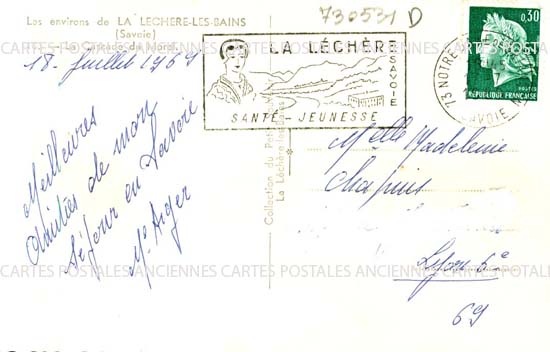 Les environs de LA LÉCHÈRE-LES-BAINS
(Savoie)
La Cascade du Morel
18 Juillet 1969
Meilleures
Amitiés de mon
Séjour en Savoie
Me Auger
730531 D
LA LÉCHÈRE
SAVOIE
SANTÉ - JEUNESSE
0,30
RÉPUBLIQUE FRANÇAISE
POSTES
73 NOTRE
SAVOIE
Collection du
La Léchère-les-Bains
Melle Madeleine
Chapuis
Lyon 6e
69
CARTES POSTALES ANCIENNES CARTES POSTALES ANCIENNES CARTES POSTALES ANCIENNES CARTES POTALE